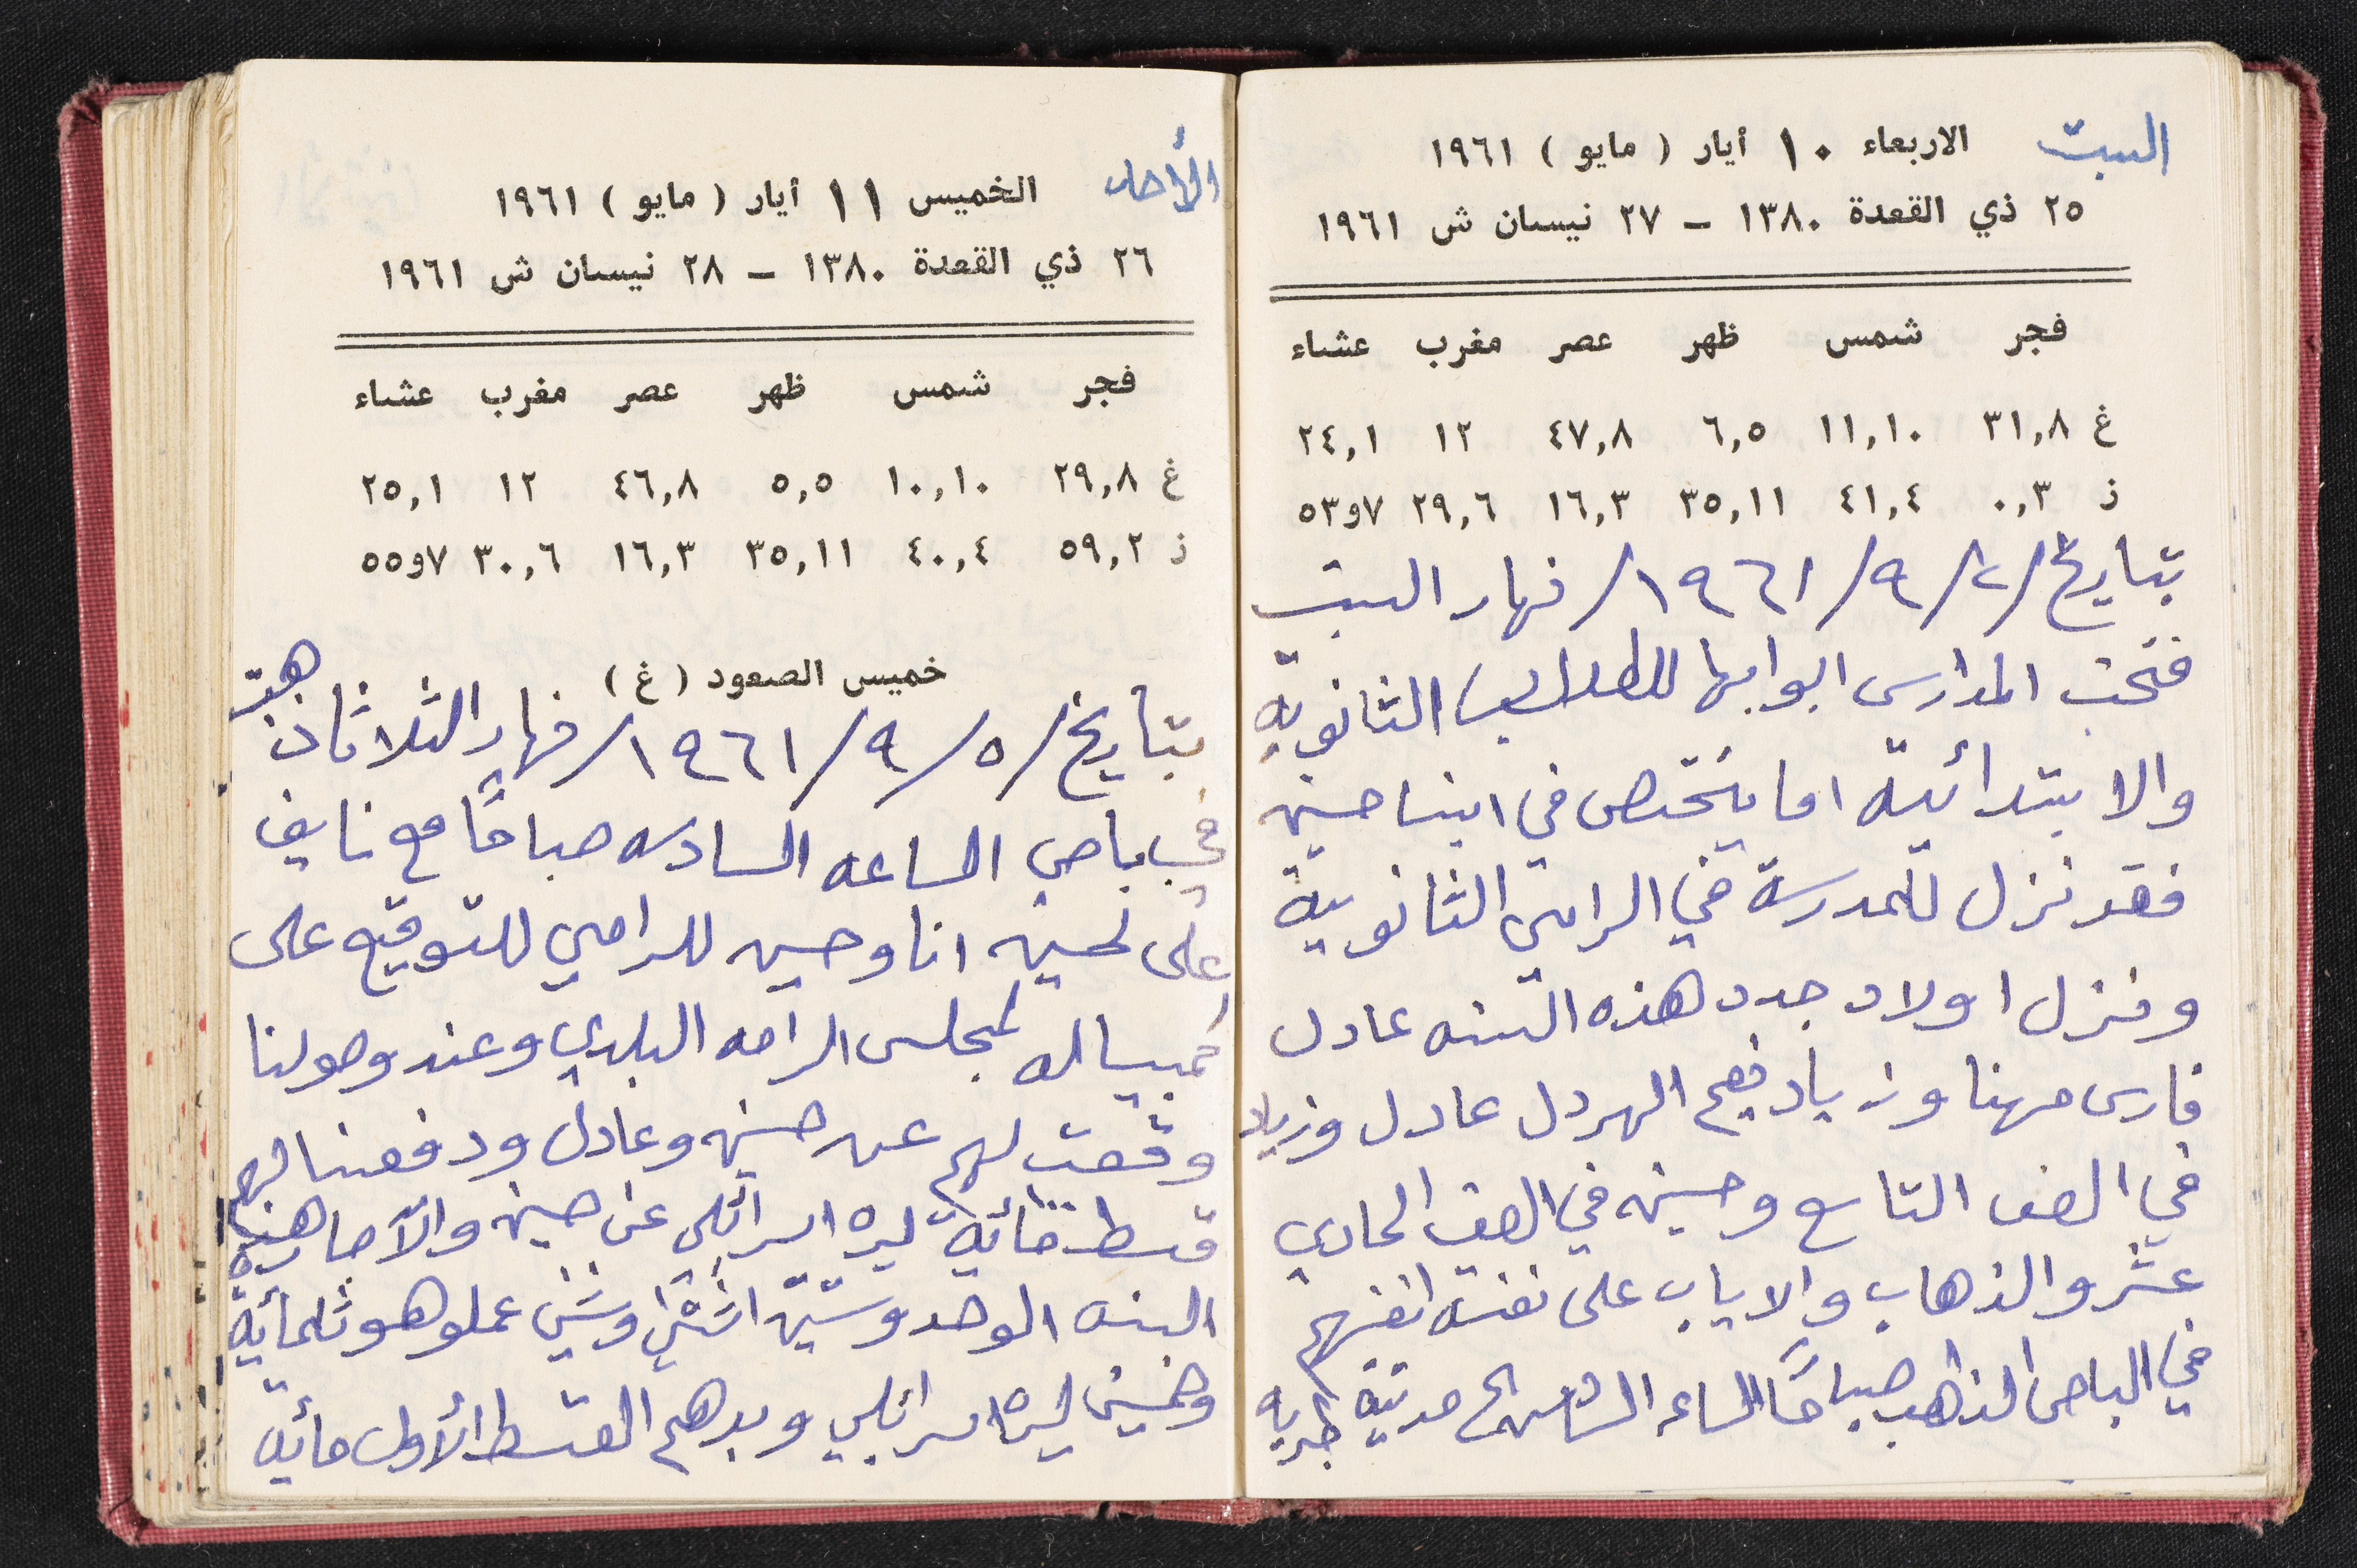 السبت
الاربعاء ١٠ أيار ( مايو ) ١٩٦١
٢٥ ذي القعدة ١٣٨٠ – ٢٧ نيسان ش ١٩٦١
فجر شمس ظهر عصر مغرب عشاء
غ ٣١,٨ ١١,١٠ ٦,٥ ٤٧,٨ ١٢ ٢٤,١
ز ٠,٣ ٤١,٤ ٣٥,١١ ١٦,٣ ٢٩,٦ ٧و٥٣
بتاريخ/٢/٩/١٩٦١/نهار السبت
فتحت المدارس ابوابها للطلاب الثانوية
والابتدائية اما يختص في ابننا حسين
فقد نزل للمدرسة في الرامي الثانوية
ونزل اولاد جدد هذه السنه عادل
فارس مهنا وزياد الهردل عادل وزياد
في الصف التاسع وحسين في الصف الحادي
عشر والذهاب والاياب على نفقة انفسهم
في الباص الذاهب صباحًا الساعه
الأحد
الخميس ١١ أيار ( مايو ) ١٩٦١
٢٦ ذي القعدة ١٣٨٠ – ٢٨ نيسان ش ١٩٦١
فجر شمس ظهر عصر مغرب عشاء
غ ٢٩,٨ ١٠,١٠ ٥,٥ ٤٦,٨ ١٢ ٢٥,١
ز ٥٩,٢ ٤٠,٤ ٣٥,١١ ١٦,٣ ٣٠,٦ ٧و٥٥
خميس الصعود ( غ )
بتاريخ/٥/٩/١٩٦١/نهار الثلاثاء
في باص الساعه السادسه صباحًا مع نايف
على انا وحسين للرامي للتوقيع على
كمبياله لمجلس الرامه البلدي وعند وصولنا
وقعت لهم عن حسين وعادل ودفعنا لهم
قسط مائة ليره اسرائلي عن حسين
السنه الوحد وستين اثنين وستين عملوه هو ثلثمأية
وخمسين ليره اسرائلي وبدهم القسط الأول مأية